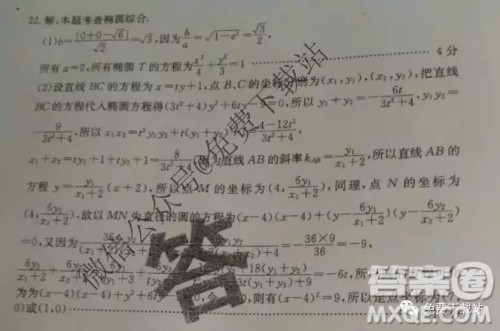 22.解:本题考查椭圆综合.
(1)b=|0+0-√6|/√2=√3,因为b/a=√(1-e²)=√3/2,
所有a=2,所有椭圆T的方程为x²/4+y²/3=1 4分
(2)设直线BC的方程为x=ty+1,点B、C的坐标分别为(x₁,y₁),(x₂,y₂),把直线
BC的方程代入椭圆方程得(3t²+4)y²+6ty-9=0,所以y₁+y₂=-6t/(3t²+4),y₁y₂=
9/(3t²+4),所以x₁x₂=t²y₁y₂+t(y₁+y₂) 4-12t²/(3t²+4),
x₁+x₂=ty₁+1+ty₂+1=8/(3t²+4) 直线AB的斜率k_AB=y₁/(x₁+2),所以直线AB的
方程y=y₁/(x₁+2)(x+2),所以点M的坐标为(4,6y₁/(x₁+2)),同理,点N的坐标为
(4, 6y₂/(x₂+2)),故以MN为直径的圆的方程为(x-4)(x-4)+(y-6y₁/(x₁+2))(y-6y₂/(x₂+2))
=0,又因为 +4=-36×9/36=-9,
6y₁/(x₁+2)+6y₂/(x₂+2) 18(y₁+y₂) =-6t,所
为为(x-4)(x-4)+ 则有(x-4)²=9,所以定点
0)或(1,0)
微信公众号@免费下载站
答
答案圈
MXQE.COM
免费下载站